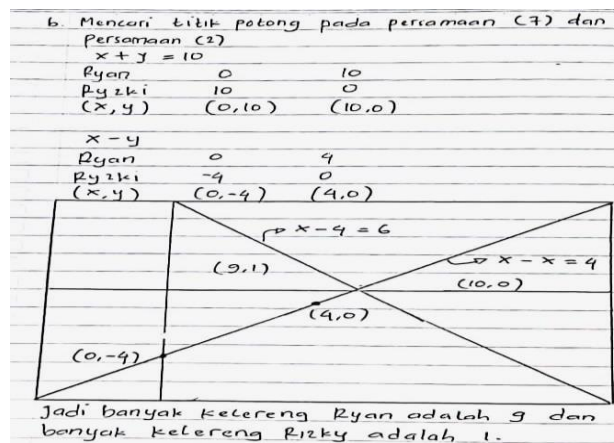 6. Mencari titik potong pada persamaan (7) dan
persamaan (2)
x + y = 10
Ryan 0 10
Ryzki 10 0
(x, y) (0,10) (10,0)
x - y
Ryan 0 4
Ryzki -4 0
(x, y) (0,-4) (4,0)
x - 4 = 6
(9,1)
x - x = 4
(10,0)
(4,0)
(0,-4)
Jadi banyak kelereng Ryan adalah 9 dan
banyak kelereng Rizky adalah 1.